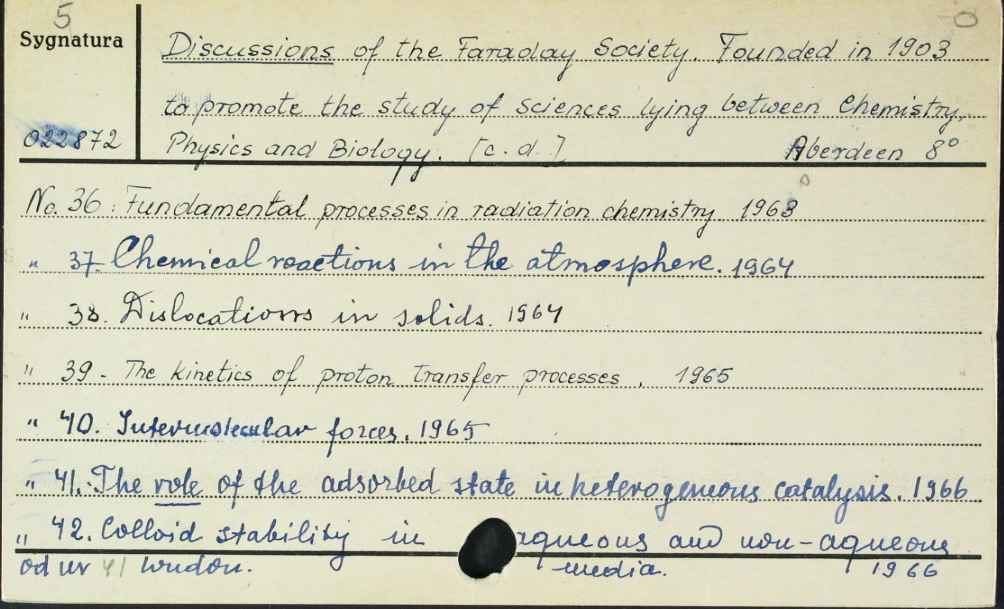 5
Sygnatura
Discussions of the Faraday Society. Founded in 1903
to promote the study of sciences lying between Chemistry,
022872
Physics and Biology. [c.d.] Aberdeen 8°
No. 36: Fundamental processes in radiation chemistry 1963
" 37. Chemical reactions in the atmosphere. 1964
" 38. Dislocations in solids. 1964
" 39 - The kinetics of proton transfer processes. 1965
" 40. Intermolecular forces. 1965
" 41. The role of the adsorbed state in heterogeneous catalysis. 1966
" 42. Colloid stability in aqueous and non-aqueous
od nr 41 London. media. 1966